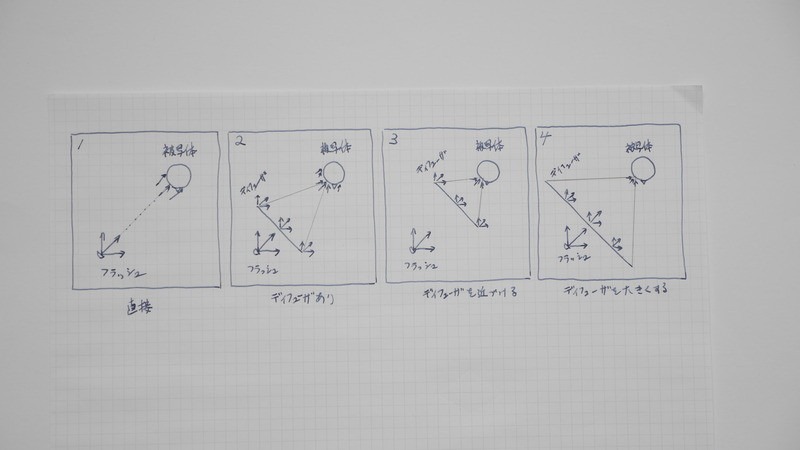 1
被写体
フラッシュ
直接
2
被写体
ディフューザ
フラッシュ
ディフューザあり
3
被写体
ディフューザ
フラッシュ
ディフューザを近づける
4
被写体
ディフューザ
フラッシュ
ディフューザを大きくする